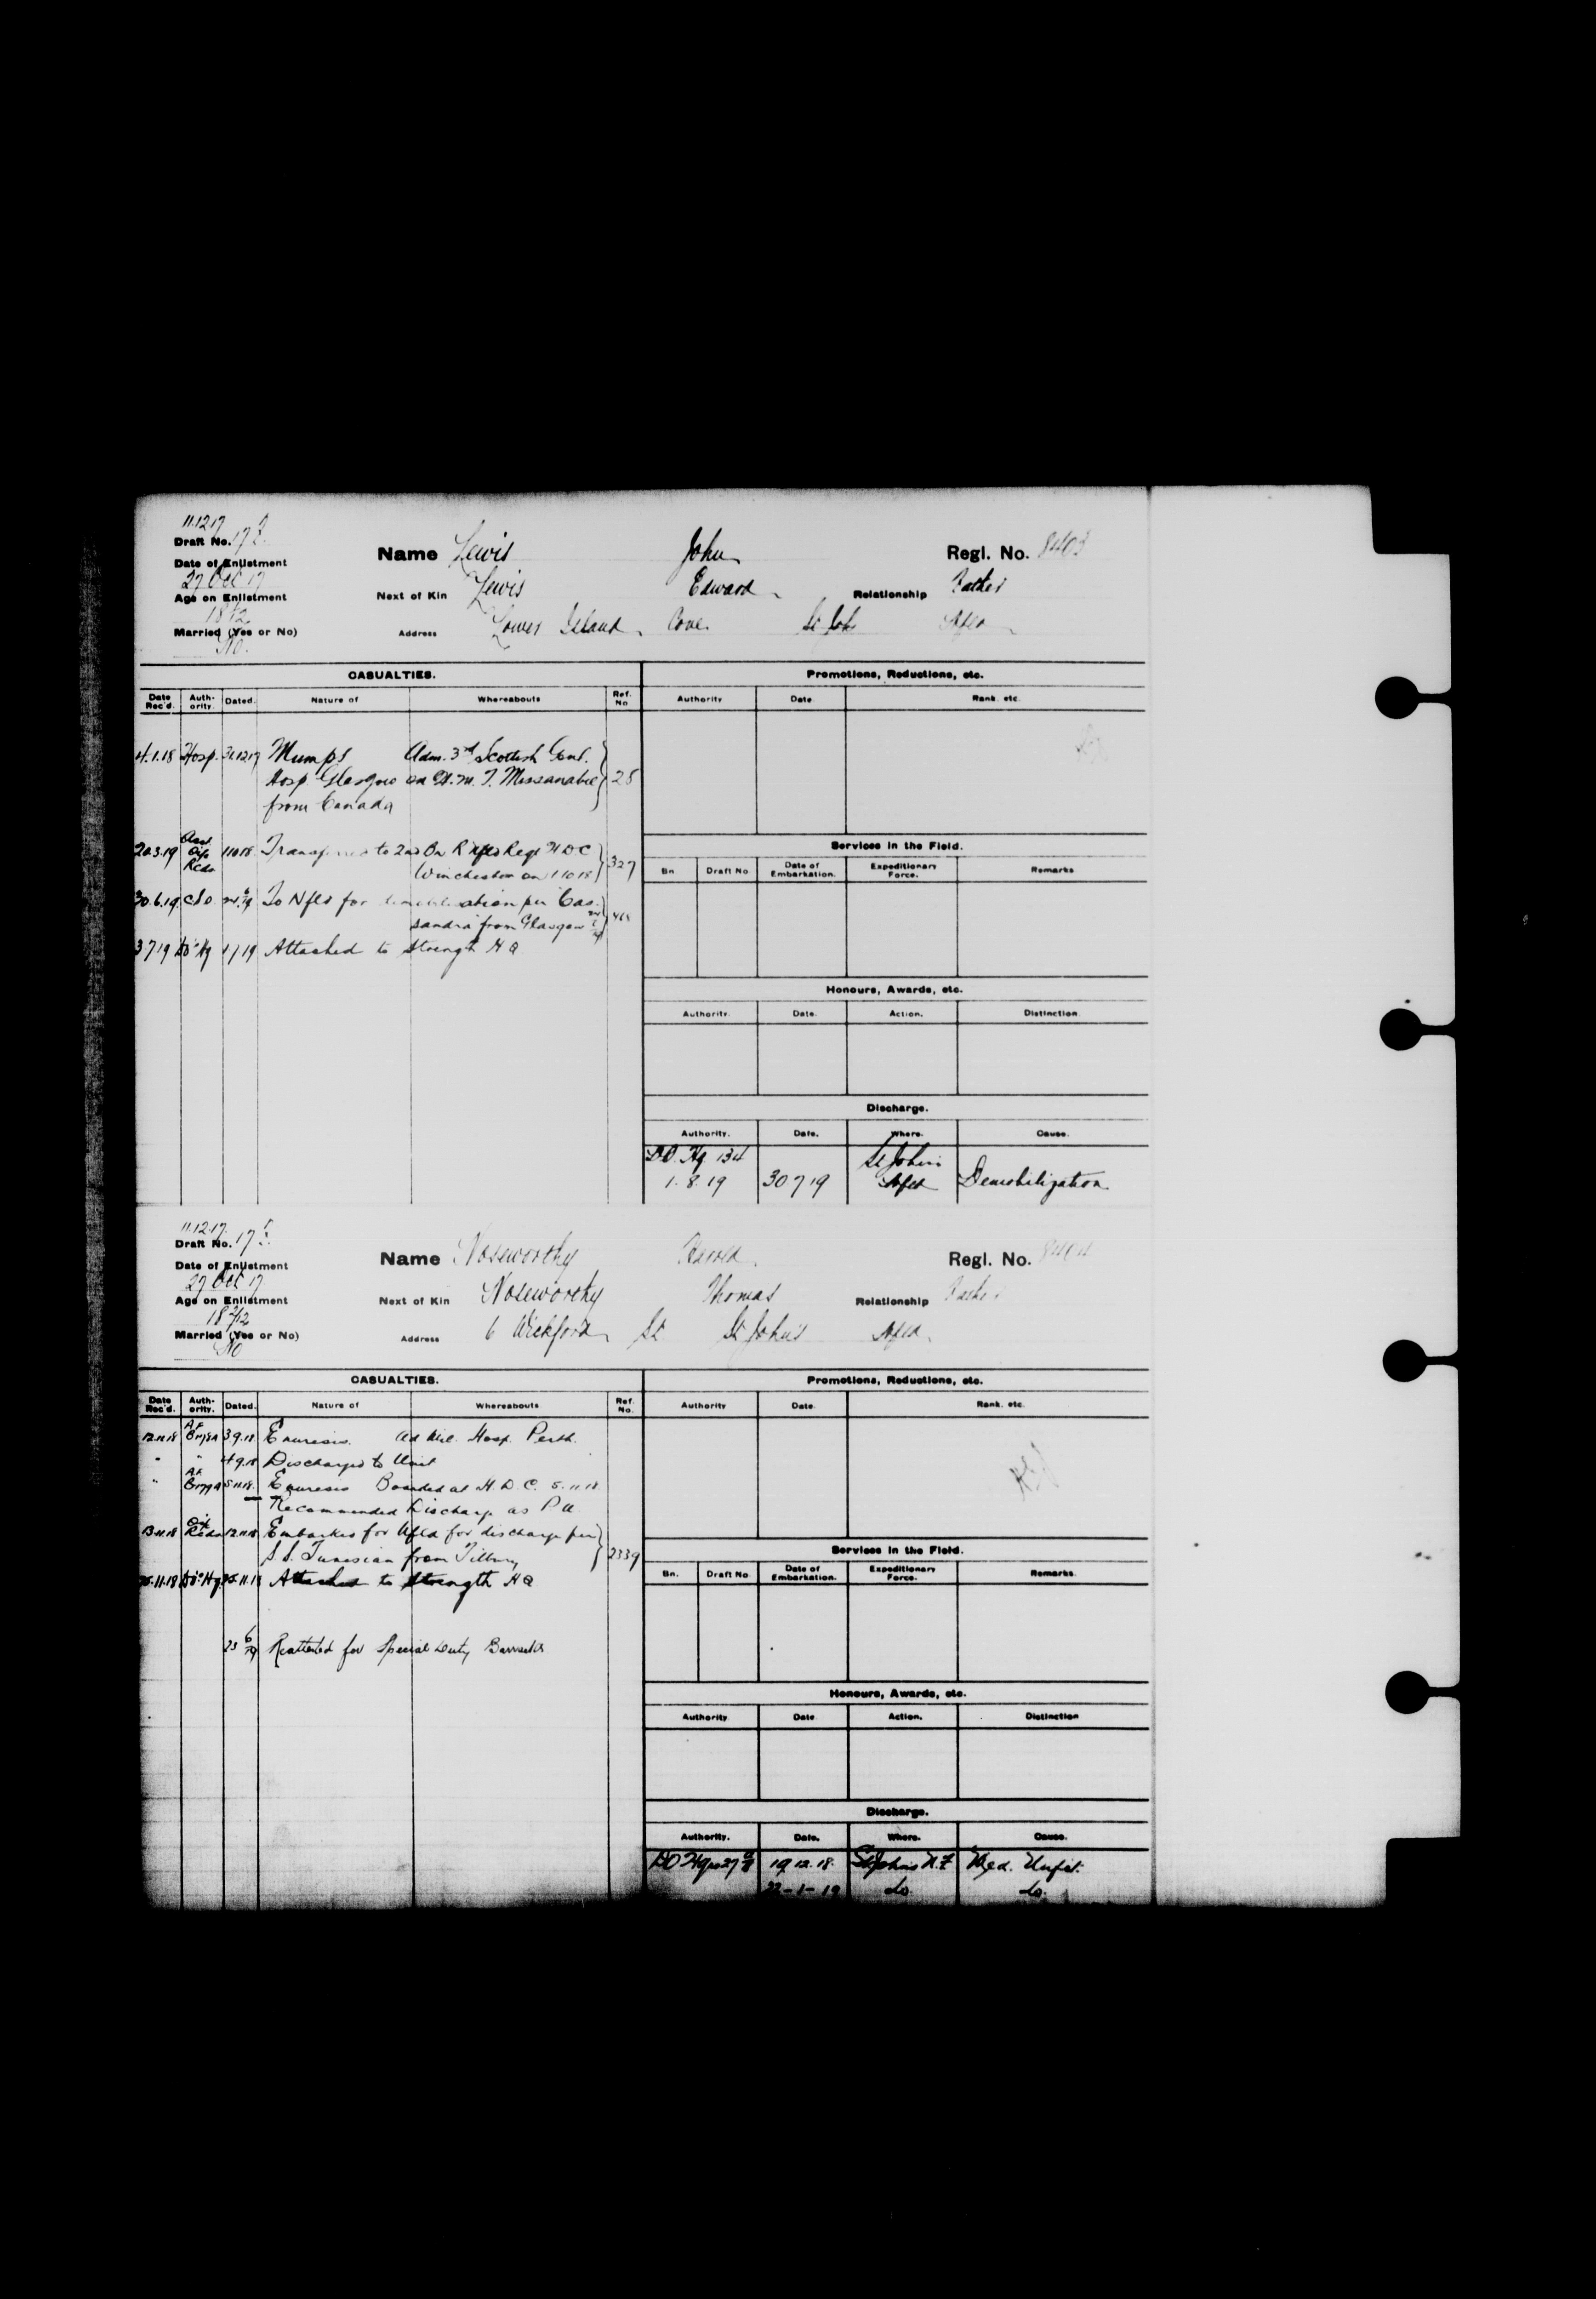 11.12.17
Draft No. 17
Name Lewis John Regl. No. 8403
Date of Enlistment
27 Oct 17
Next of Kin Lewis Edward Relationship Father
Age on Enlistment
18
Address Lower Island Cove. St Joh Nfld
Married (Yes or No)
No.
CASUALTIES. Promotions, Reductions, etc.
Date Rec'd. Auth-ority. Dated. Nature of Whereabouts Ref. No Authority Date Rank. etc.
4.1.18 Hosp. 31.12.17 Mumps Adm. 3rd Scottish Genl.
Hosp. Glasgow ex H.M.T. Missanabie 28
from Canada
Services in the Field.
Bn Draft No Date of Embarkation. Expeditionary Force. Remarks
20.3.19 Rcds 1 10 18 Transferred to 2nd Bn R Regt H D C
Winchester on 1 10 18 327
30.6.19 To Nfld for demobilisation per Cas-
sandra from Glasgow
3 7 19 DO Hq 1 7 19 Attached to Strength H Q
Honours, Awards, etc.
Authority. Date. Action. Distinction
Discharge.
Authority. Date. Where. Cause.
DO. Hq 134 St John's
1. 8. 19 30 7 19 Nfld Demobilization
11.12.17.
Draft No. 17
Name Noseworthy Harold. Regl. No. 8404
Date of Enlistment
27 Oct 17
Next of Kin Noseworthy Thomas Relationship Father
Age on Enlistment
18 2/12
Address 6 Wickford St St John's Nfld.
Married (Yes or No)
No
CASUALTIES. Promotions, Reductions, etc.
Date Rec'd. Auth-ority. Dated. Nature of Whereabouts Ref. No. Authority Date Rank. etc.
12.11.18 3 9.18 Enuresis. Ad Mil. Hosp. Perth.
" " 4 9.18 Discharged to Unit
" 5 11 18. Enuresis Boarded at H. D. C. 5. 11 18
Recommended Discharge as P U
13.11.18 Rcds 12.11.18 Embarked for Nfld for discharge per
S. S. Tunesian from Tilbury 2339
25.11.18 DO Hq 25.11.18 Attached to Strength H Q
Services in the Field.
Bn. Draft No Date of Embarkation. Expeditionary Force. Remarks.
23 6/19 Reattested for Special Duty Barracks
Honours, Awards, etc.
Authority Date Action. Distinction
Discharge.
Authority. Date. Where. Cause.
DO 19 12. 18. St John's N.F. Med. Unfit.
22-1-19 do. do.